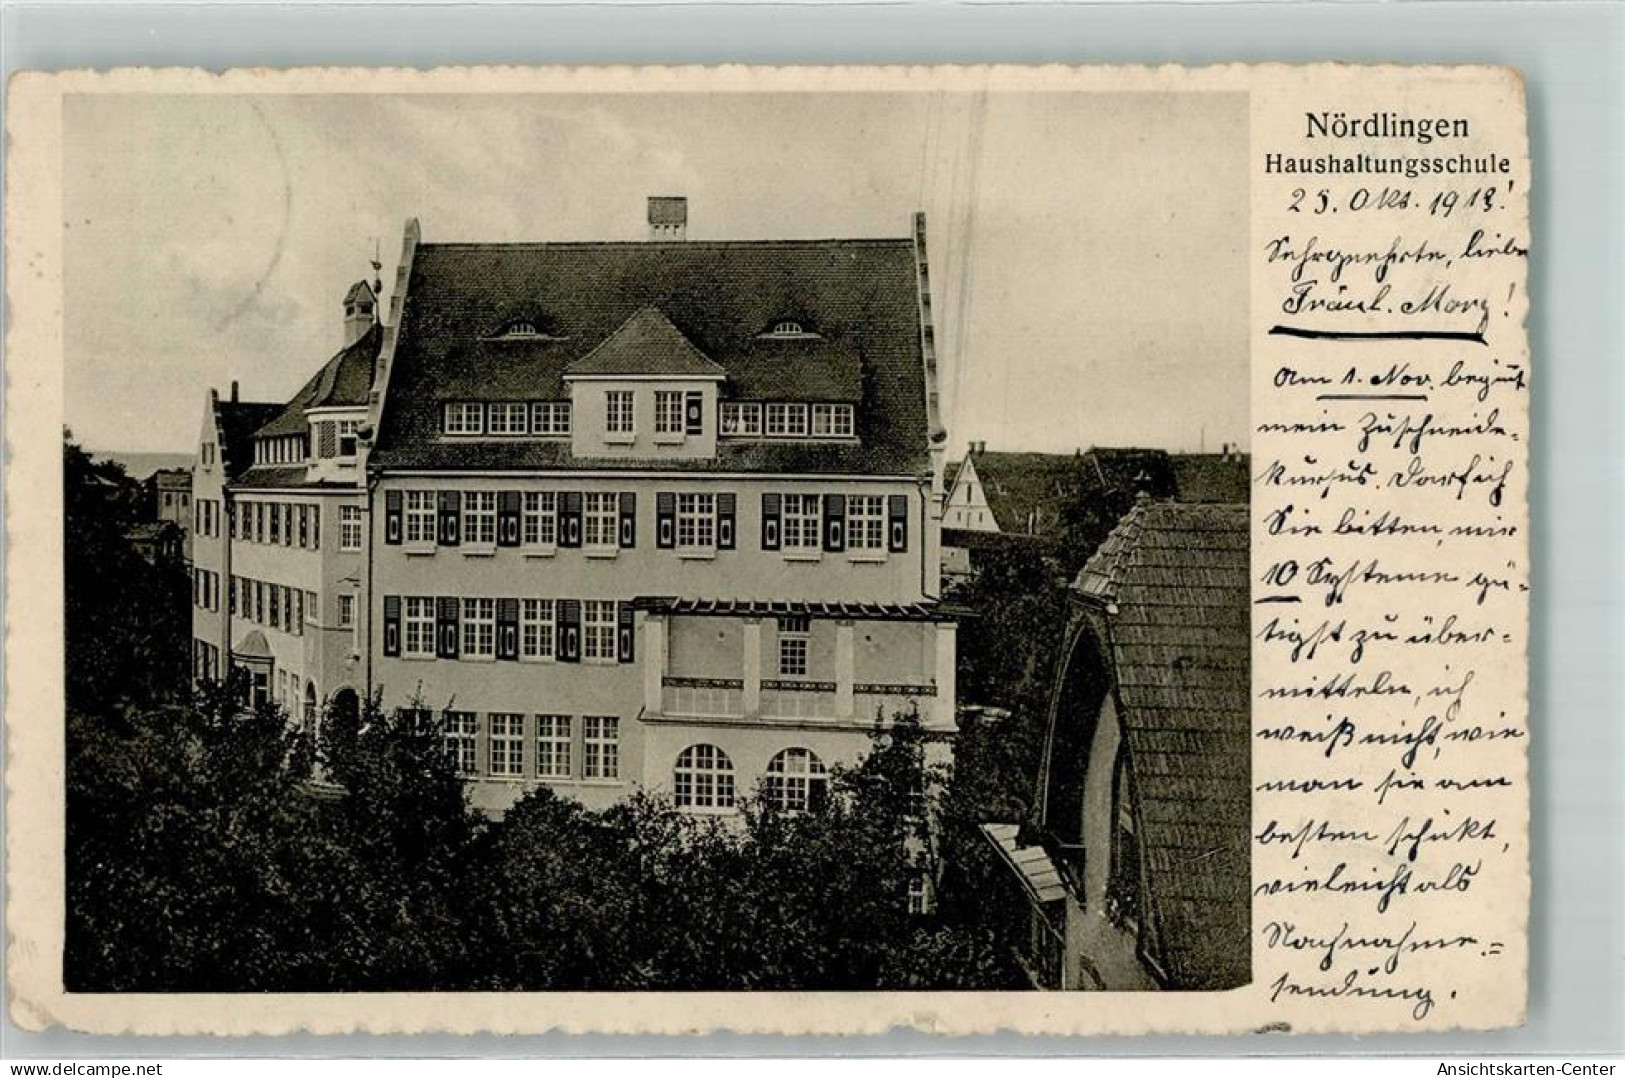 Nördlingen
Haushaltungsschule
25. Okt. 1918!
Sehrgeehrte, liebe
Fräul. Morg!
Am 1. Nov. beginnt
mein Zuschneide-
kursus. Darf ich
Sie bitten, mir
10 Systeme gü-
tigst zu über-
mitteln, ich
weiß nicht, wie
man sie am
besten schickt,
vielleicht als
Nachnahme-
sendung.
delcampe.net
Ansichtskarten-Center